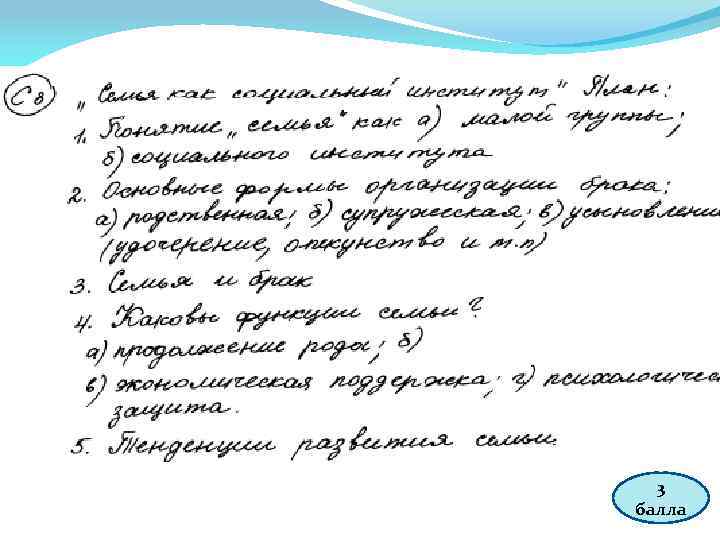 С8 „Семья как социальный институт" План:
1. Понятие „семья" как а) малой группы;
б) социального института
2. Основные формы организации брака:
а) родственная; б) супружеская; в) усыновлени
(удочерение, опекунство и т.п)
3. Семья и брак
4. Каковы функции семьи?
а) продолжение рода; б)
в) экономическая поддержка; г) психологичес
защита.
5. Тенденции развития семьи.
3
балла